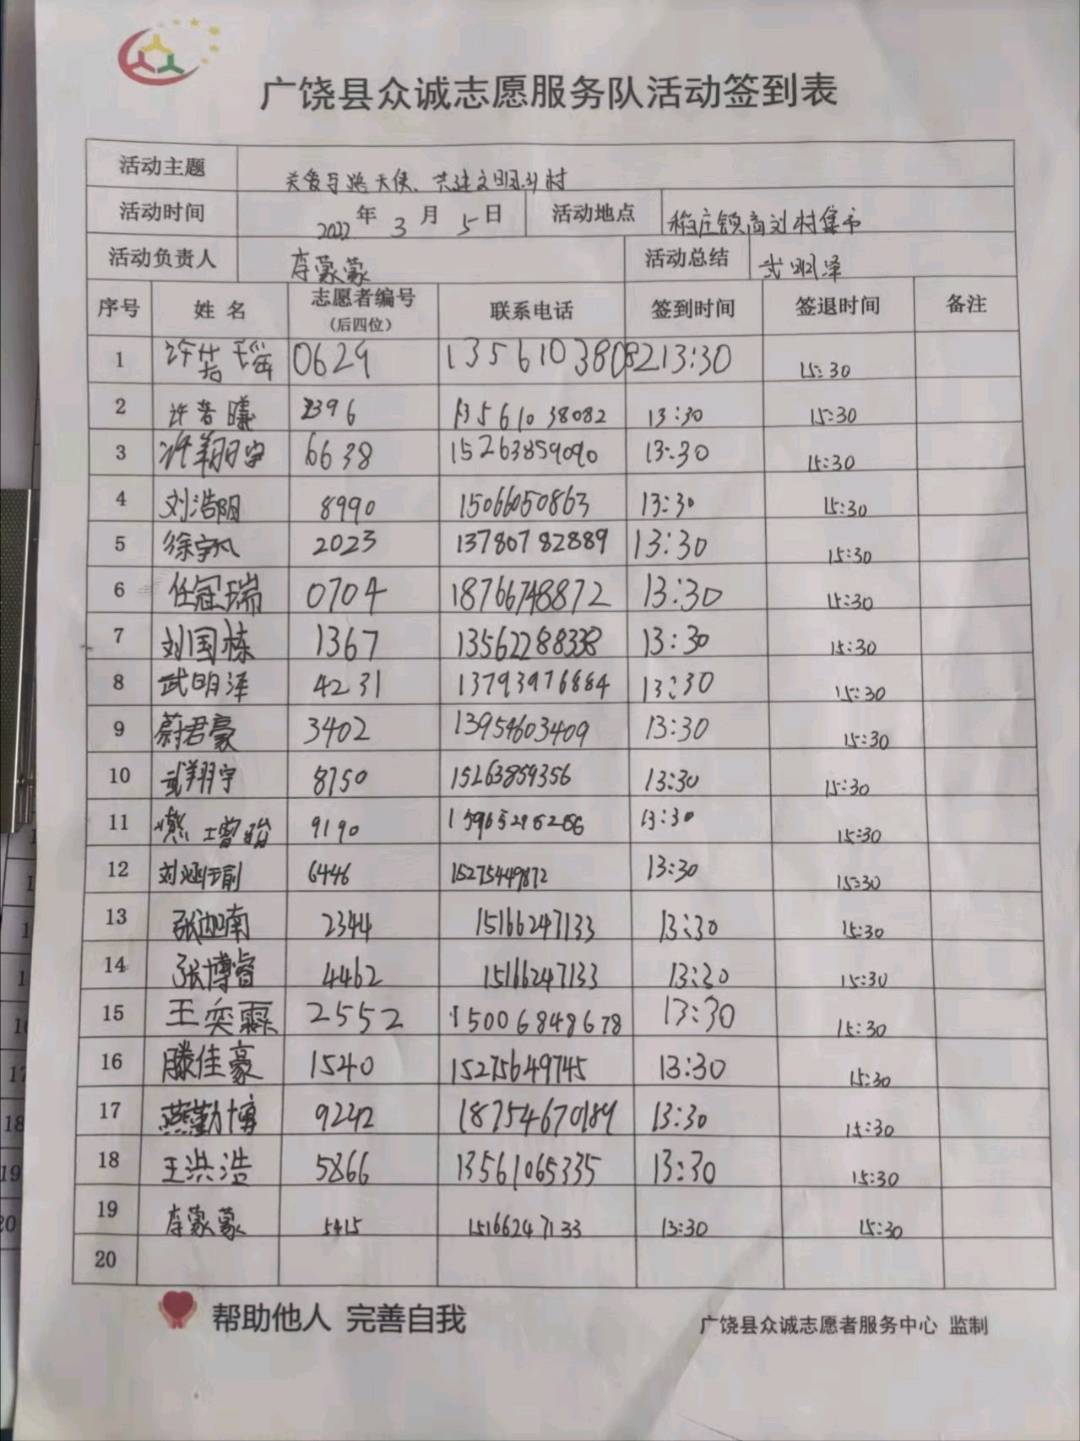 广饶县众诚志愿服务队活动签到表
活动主题 关爱马路天使、共建文明乡村
活动时间 2022年3月5日 活动地点 稻庄镇高刘村集市
活动负责人 李蒙蒙 活动总结 武明泽
序号 姓名 志愿者编号（后四位） 联系电话 签到时间 签退时间 备注
1 许若瑶 0629 13561038082 13:30 15:30
2 许若曦 2396 13561038082 13:30 15:30
3 许翔宇 6638 15263859090 13:30 15:30
4 刘浩阳 8990 15066050863 13:30 15:30
5 徐宇风 2023 13780782889 13:30 15:30
6 任冠瑞 0704 18766748872 13:30 15:30
7 刘国栋 1367 13562288338 13:30 15:30
8 武明泽 4231 13793976884 13:30 15:30
9 蔚君豪 3402 13954603409 13:30 15:30
10 武翔宇 8750 15263859356 13:30 15:30
11 9190 13:30 15:30
12 6446 15275449872 13:30 15:30
13 张迦南 2344 15166247133 13:30 15:30
14 张博睿 4462 15166247133 13:30 15:30
15 王奕霖 2552 15006848678 13:30 15:30
16 滕佳豪 1540 15275649745 13:30 15:30
17 燕勤博 9242 18754670189 13:30 15:30
18 王洪浩 5866 13561065335 13:30 15:30
19 李蒙蒙 5415 15166247133 13:30 15:30
20
帮助他人 完善自我
广饶县众诚志愿者服务中心 监制